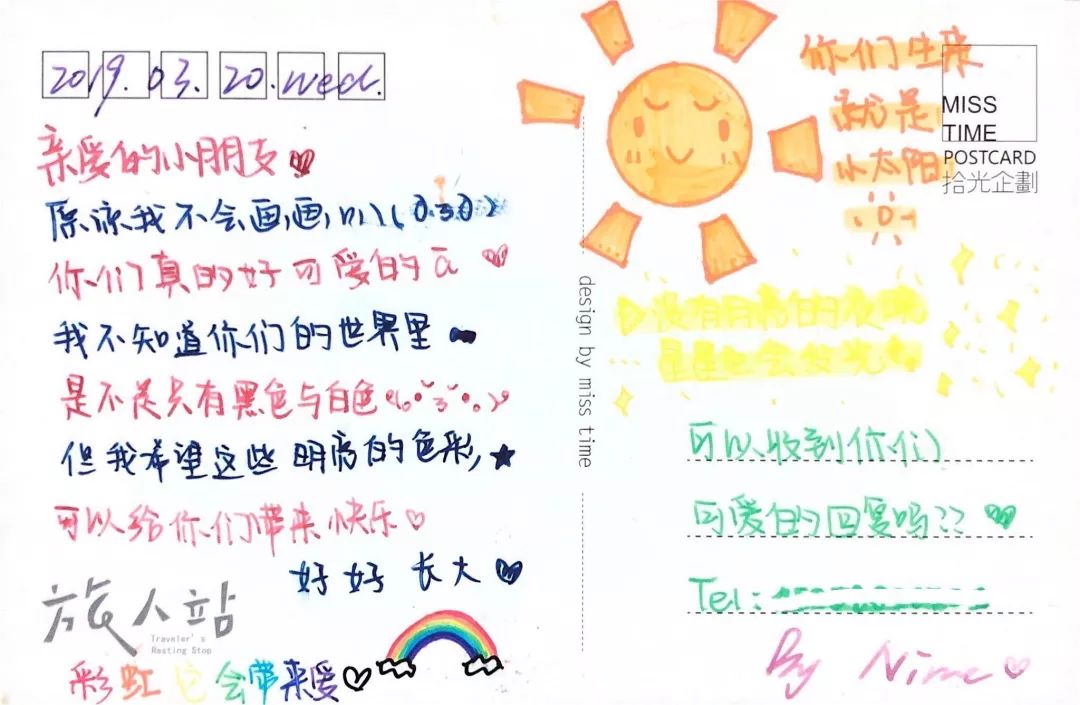 2019.03.20.wed.
亲爱的小朋友
原谅我不会画画,
你们真的好可爱的
我不知道你们的世界里
是不是只有黑色与白色
但我希望这些明亮的色彩,
可以给你们带来快乐
好好长大
旅人站
Traveler's
Resting Stop
彩虹它会带来爱
design by miss time
你们生来
就是
小太阳
MISS
TIME
POSTCARD
拾光企劃
没有月亮的夜晚
星星也会发光
可以收到你们
可爱的回复吗??
Tel:
By Nime